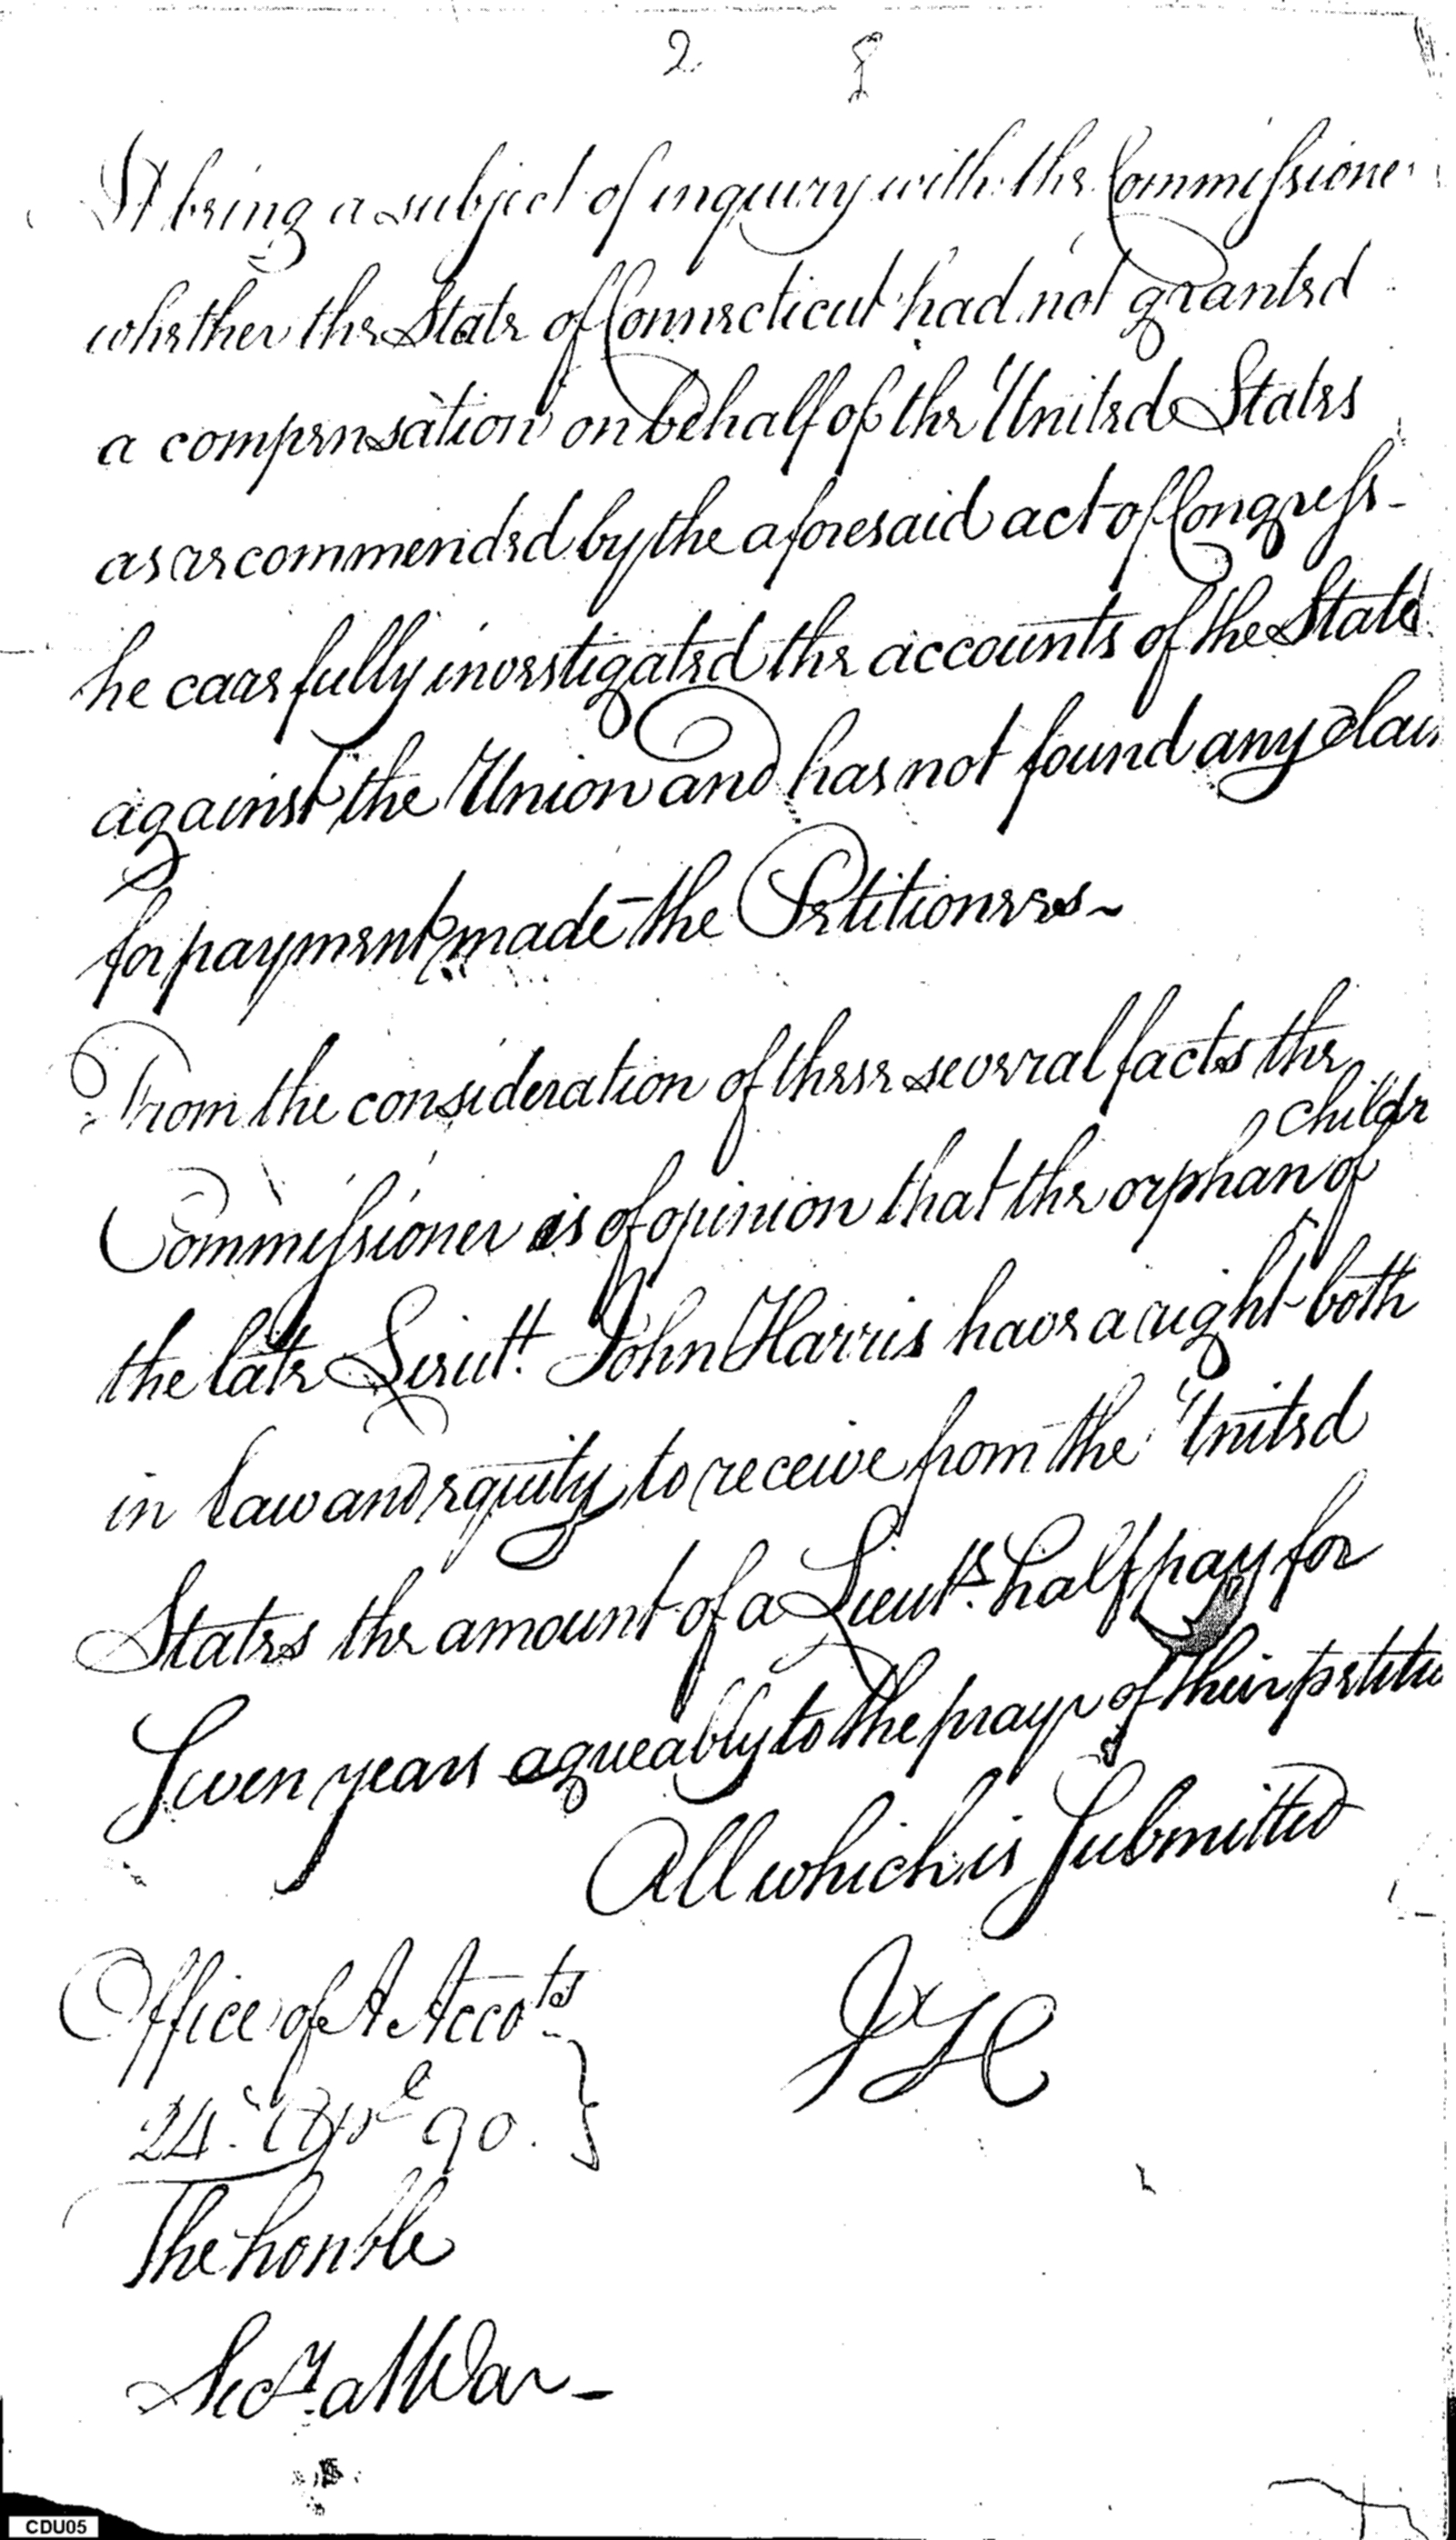 2
It being a subject of inquiry with the Commissione
whether the State of Connecticut had not granted
a compensation on behalf of the United States
as recommended by the aforesaid act of Congress-
he carefully investigated the accounts of the State
against the Union and has not found any claim
for payment made the Petitioners~
From the consideration of these several facts the
childr
Commissioner is of opinion that the orphan of
the late Lieutt. John Harris have a right both
in Law and equity to receive from the United
States the amount of a Lieuts. half pay for
Seven years agreeably to the prayr of their petiti
All which is Submitted
Office of A Accots
24. Aprl 90.
The honble
Secy at War-
CDU05